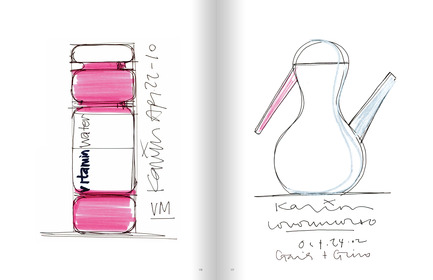 vitaminwater
Karim Apr 22-10
VM
Karim
Oct. 24. 02
Gaia + Gino